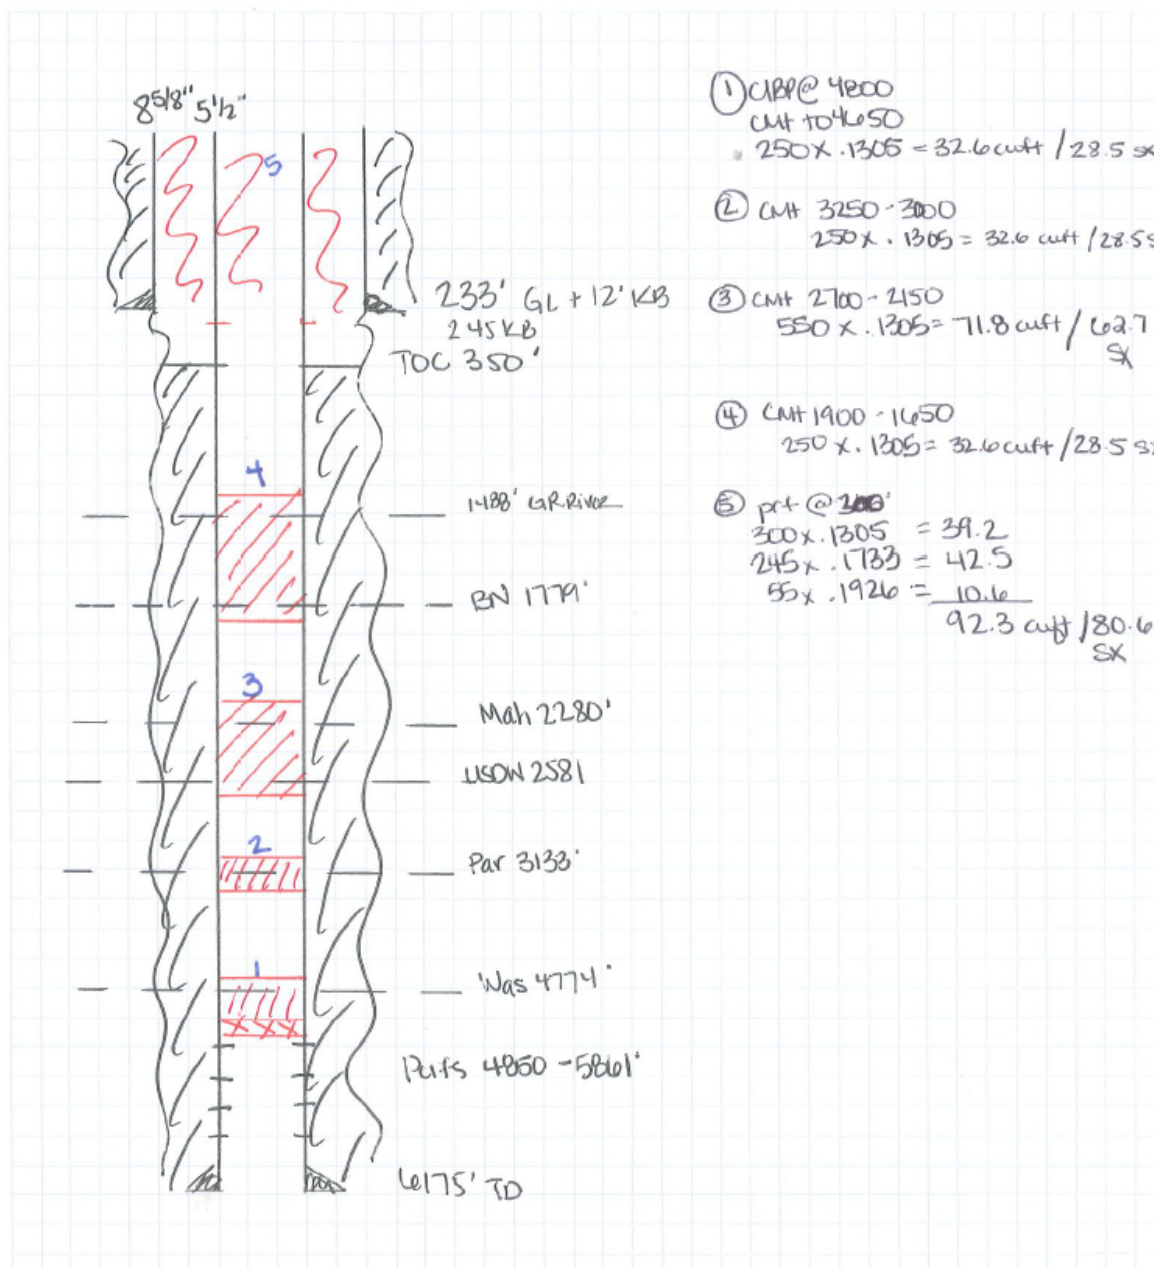 8 5/8" 5 1/2"
5
233' GL + 12' KB
245 KB
TOC 350'
4
1488' GR River
BN 1779'
3
Mah 2280'
USDW 2581
2
Par 3133'
1
Was 4774'
XXX
Perfs 4850 - 5861'
6175' TD
① CIBP @ 4800
CMT to 4650
250 x .1305 = 32.6 cuft / 28.5 sx
② CMT 3250 - 3000
250 x .1305 = 32.6 cuft / 28.5 s
③ CMT 2700 - 2150
550 x .1305 = 71.8 cuft / 62.7
SX
④ CMT 1900 - 1650
250 x .1305 = 32.6 cuft / 28.5 sx
⑤ prf @ 300'
300 x .1305 = 39.2
245 x .1733 = 42.5
55 x .1926 = 10.6
92.3 cuft / 80.6
SX